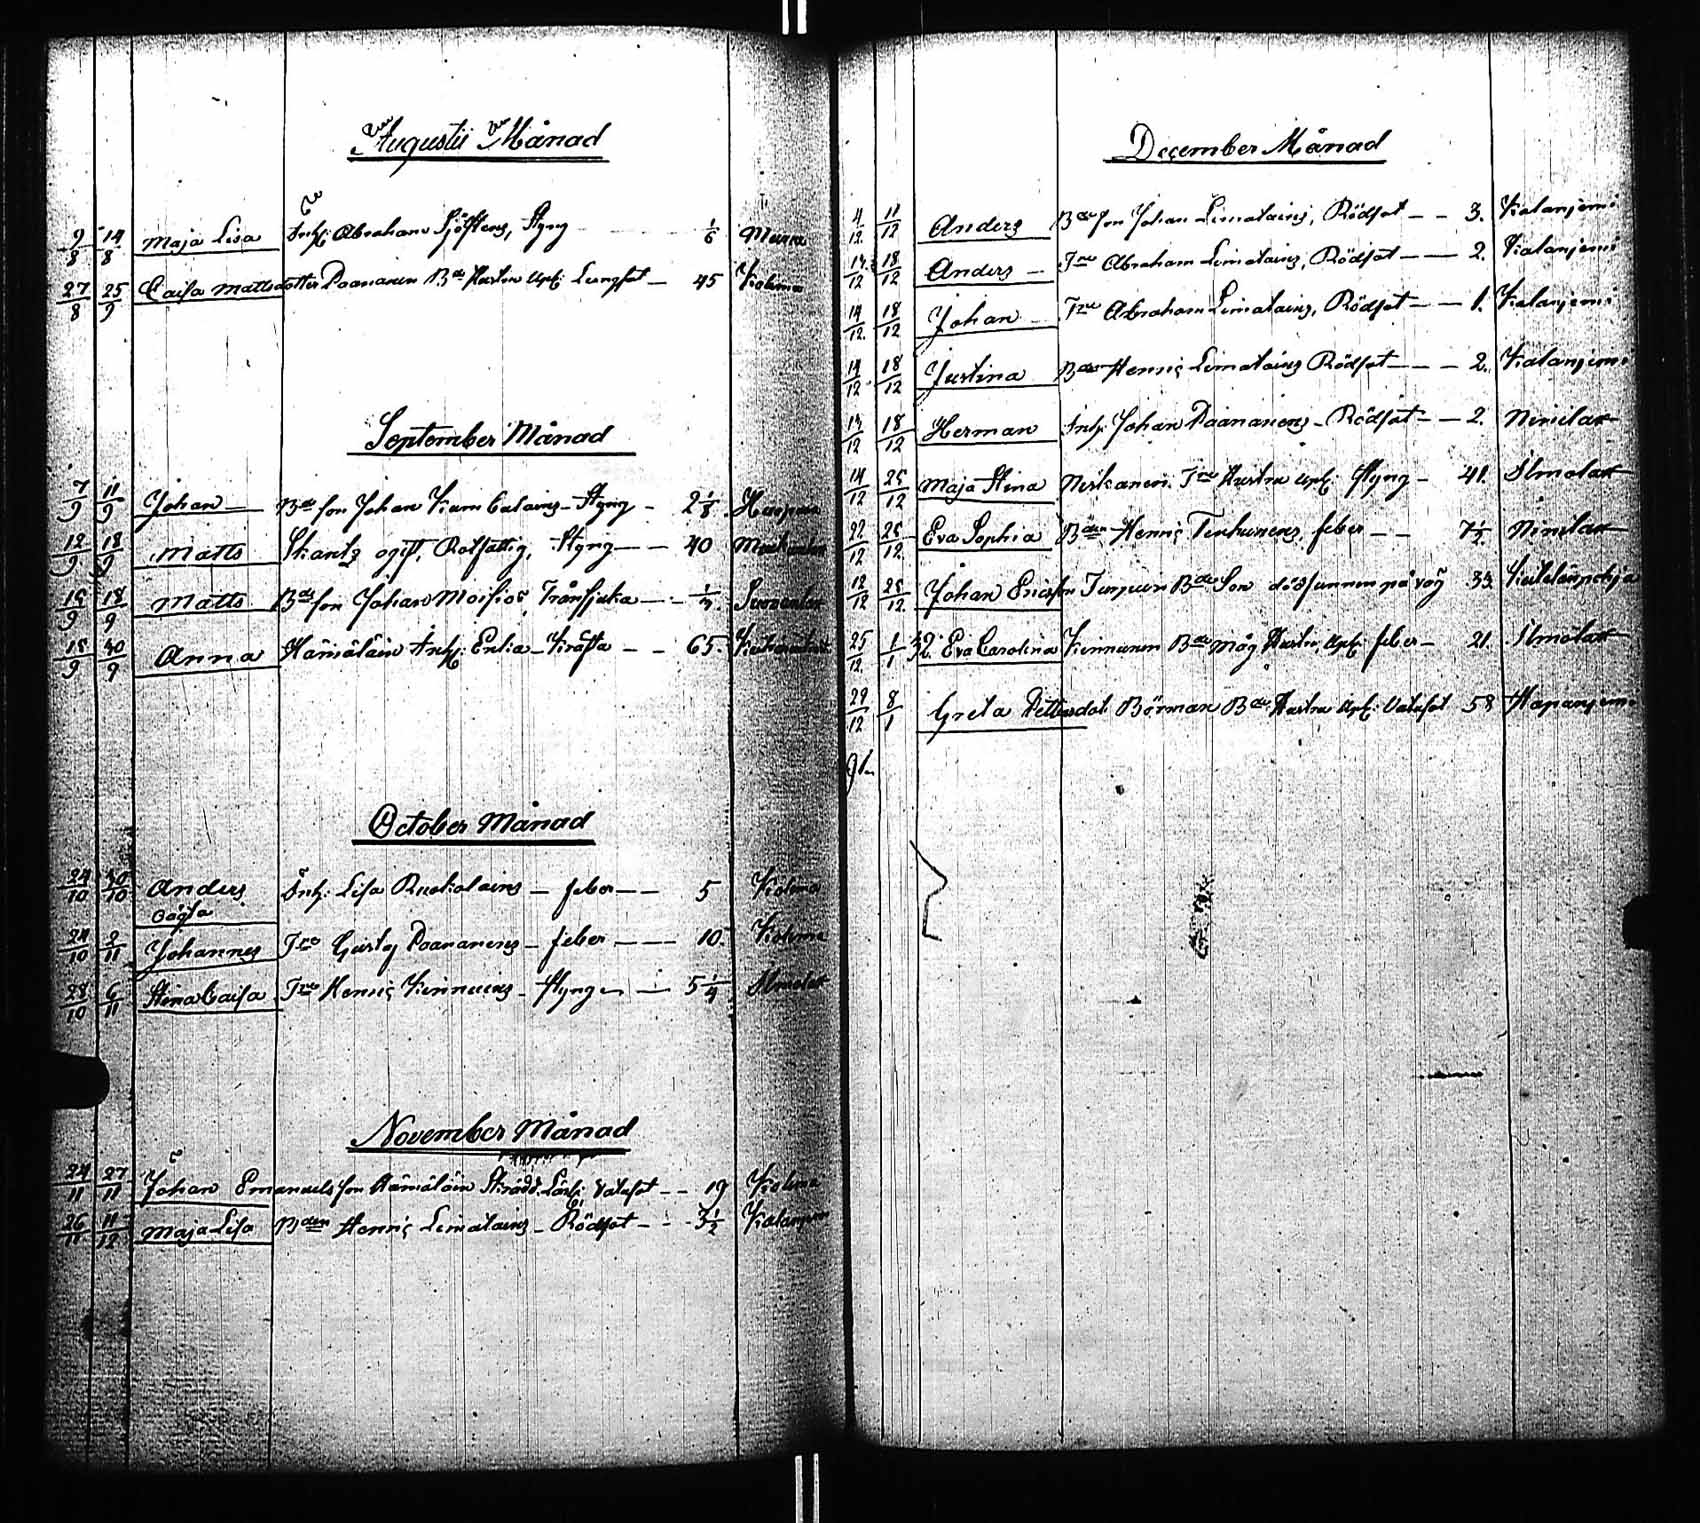 Augusti Månad
9/8 14/8 Maja Lisa Inh: Abraham Styng 1/6
27/8 25/9 Caisa Mattsdotter Paananen Bde Hustru Lungsot 45 Kiolima
September Månad
7/9 11/9 Johan Bde son Johan Styng 2 1/8
12/9 18/9 Matts Skantz ogift, Rotfattig, Styng 40
15/9 18/9 Matts Bde son Johan Moisios Trånsjuka
18/9 30/9 Anna Hämäläin Inh: Enka Kräfta 65.
October Månad
24/10 30/10 Anders oägta Inh: Lisa feber 5 Kiolima
24/10 2/11 Johannes Tre Gustaf Paananens feber 10. Kiolima
28/10 6/11 Stina Caisa Tre Henric Kinnunens Styng 5 1/4 Ilmolax
November Månad
24/11 27/11 Johan Emanuelsson Hämäläin Vatusot 19 Kiolima
26/11 11/12 Maja Lisa Bden Henric Limatains Rödsot 3 1/2 Kialanjemi
December Månad
4/12 11/12 Anders Bde son Johan Limatains, Rödsot 3. Kialanjemi
14/12 18/12 Anders Tre Abraham Limatains, Rödsot 2. Kialanjemi
14/12 18/12 Johan Tre Abraham Limatains, Rödsot 1. Kialanjemi
14/12 18/12 Justina Bden Henric Limatains Rödsot 2. Kialanjemi
14/12 18/12 Herman Inh: Johan Paananens Rödsot 2. Ninilax
14/12 26/12 Maja Stina Niskanen Tre Hustru Styng 41. Ilmolax
22/12 26/12 Eva Sophia Bden Henric Tenhunens feber 7 1/2 Ninilax
12/12 28/12 Johan Ericsson Bde Son dödfunnen på väg 33
25/12 1/1 32 Eva Carolina Kinnunen Bde måg Hustru feber 21. Ilmolax
29/12 8/1 Greta Pettersdot: Börman Bde Hustru Vatusot 58 Hapanjemi